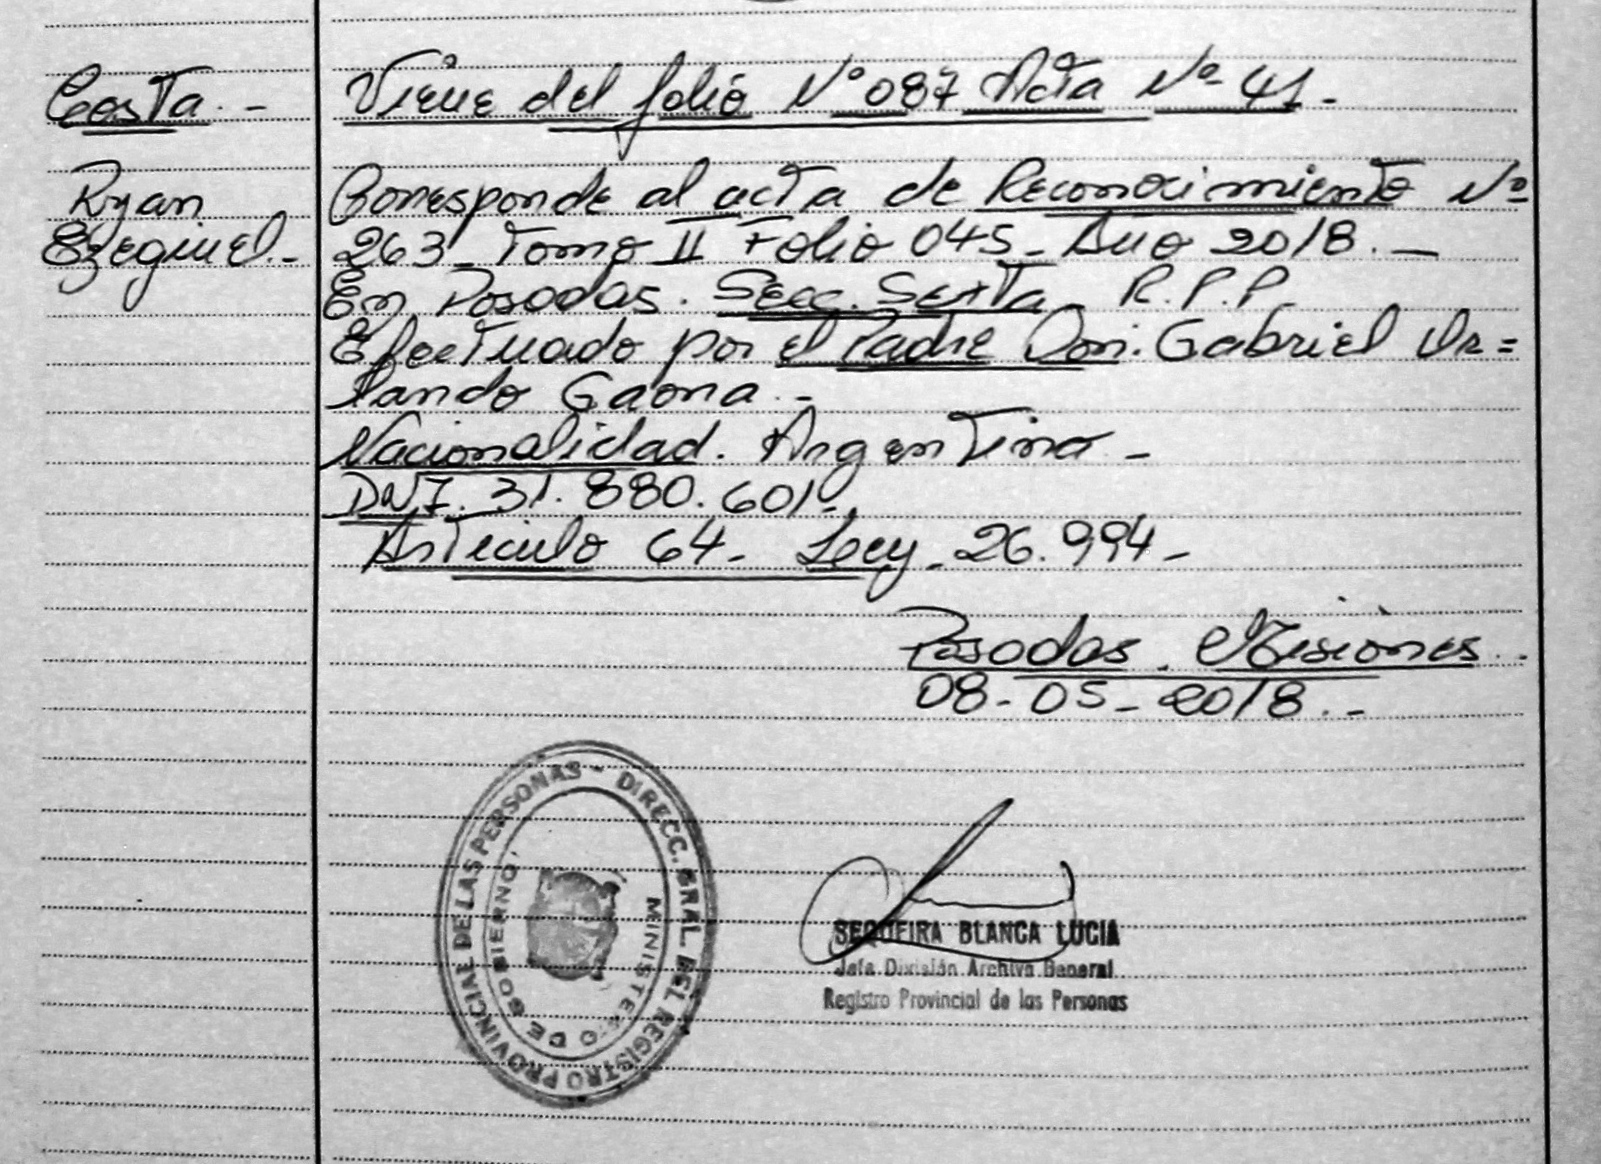 Costa. -
Ryan
Ezequiel. -
Viene del folio Nº 087 Acta Nº 41. -
Corresponde al acta de Reconocimiento Nº
263 - Tomo II Folio 045 - Año 2018. -
En Posadas. Secc. Sexta R.P.P.
Efectuado por el Padre Don. Gabriel Or=
lando Gaona. -
Nacionalidad. Argentina -
DNI. 31.880.601 -
Artículo 64 - Ley - 26.994 -
Posadas. Misiones. -
08 - 05 - 2018. -
DIRECC. GRAL. DEL REGISTRO PROVINCIAL DE LAS PERSONAS -
MINISTERIO DE GOBIERNO
SEQUEIRA BLANCA LUCIA
Jefa División Archivo General
Registro Provincial de las Personas